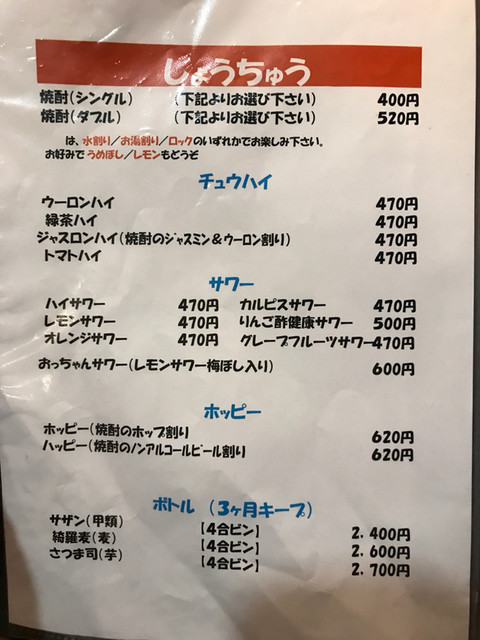 しょうちゅう
焼酎(シングル) (下記よりお選び下さい) 400円
焼酎(ダブル) (下記よりお選び下さい) 520円
は、水割り/お湯割り/ロックのいずれかでお楽しみ下さい。
お好みでうめぼし/レモンもどうぞ
チュウハイ
ウーロンハイ 470円
緑茶ハイ 470円
ジャスロンハイ(焼酎のジャスミン&ウーロン割り) 470円
トマトハイ 470円
サワー
ハイサワー 470円 カルピスサワー 470円
レモンサワー 470円 りんご酢健康サワー 500円
オレンジサワー 470円 グレープフルーツサワー470円
おっちゃんサワー(レモンサワー梅ぼし入り) 600円
ホッピー
ホッピー(焼酎のホップ割り 620円
ハッピー(焼酎のノンアルコールビール割り 620円
ボトル (3ヶ月キープ)
サザン(甲類) 【4合ビン】 2,400円
綺羅麦(麦) 【4合ビン】 2,600円
さつま司(芋) 【4合ビン】 2,700円